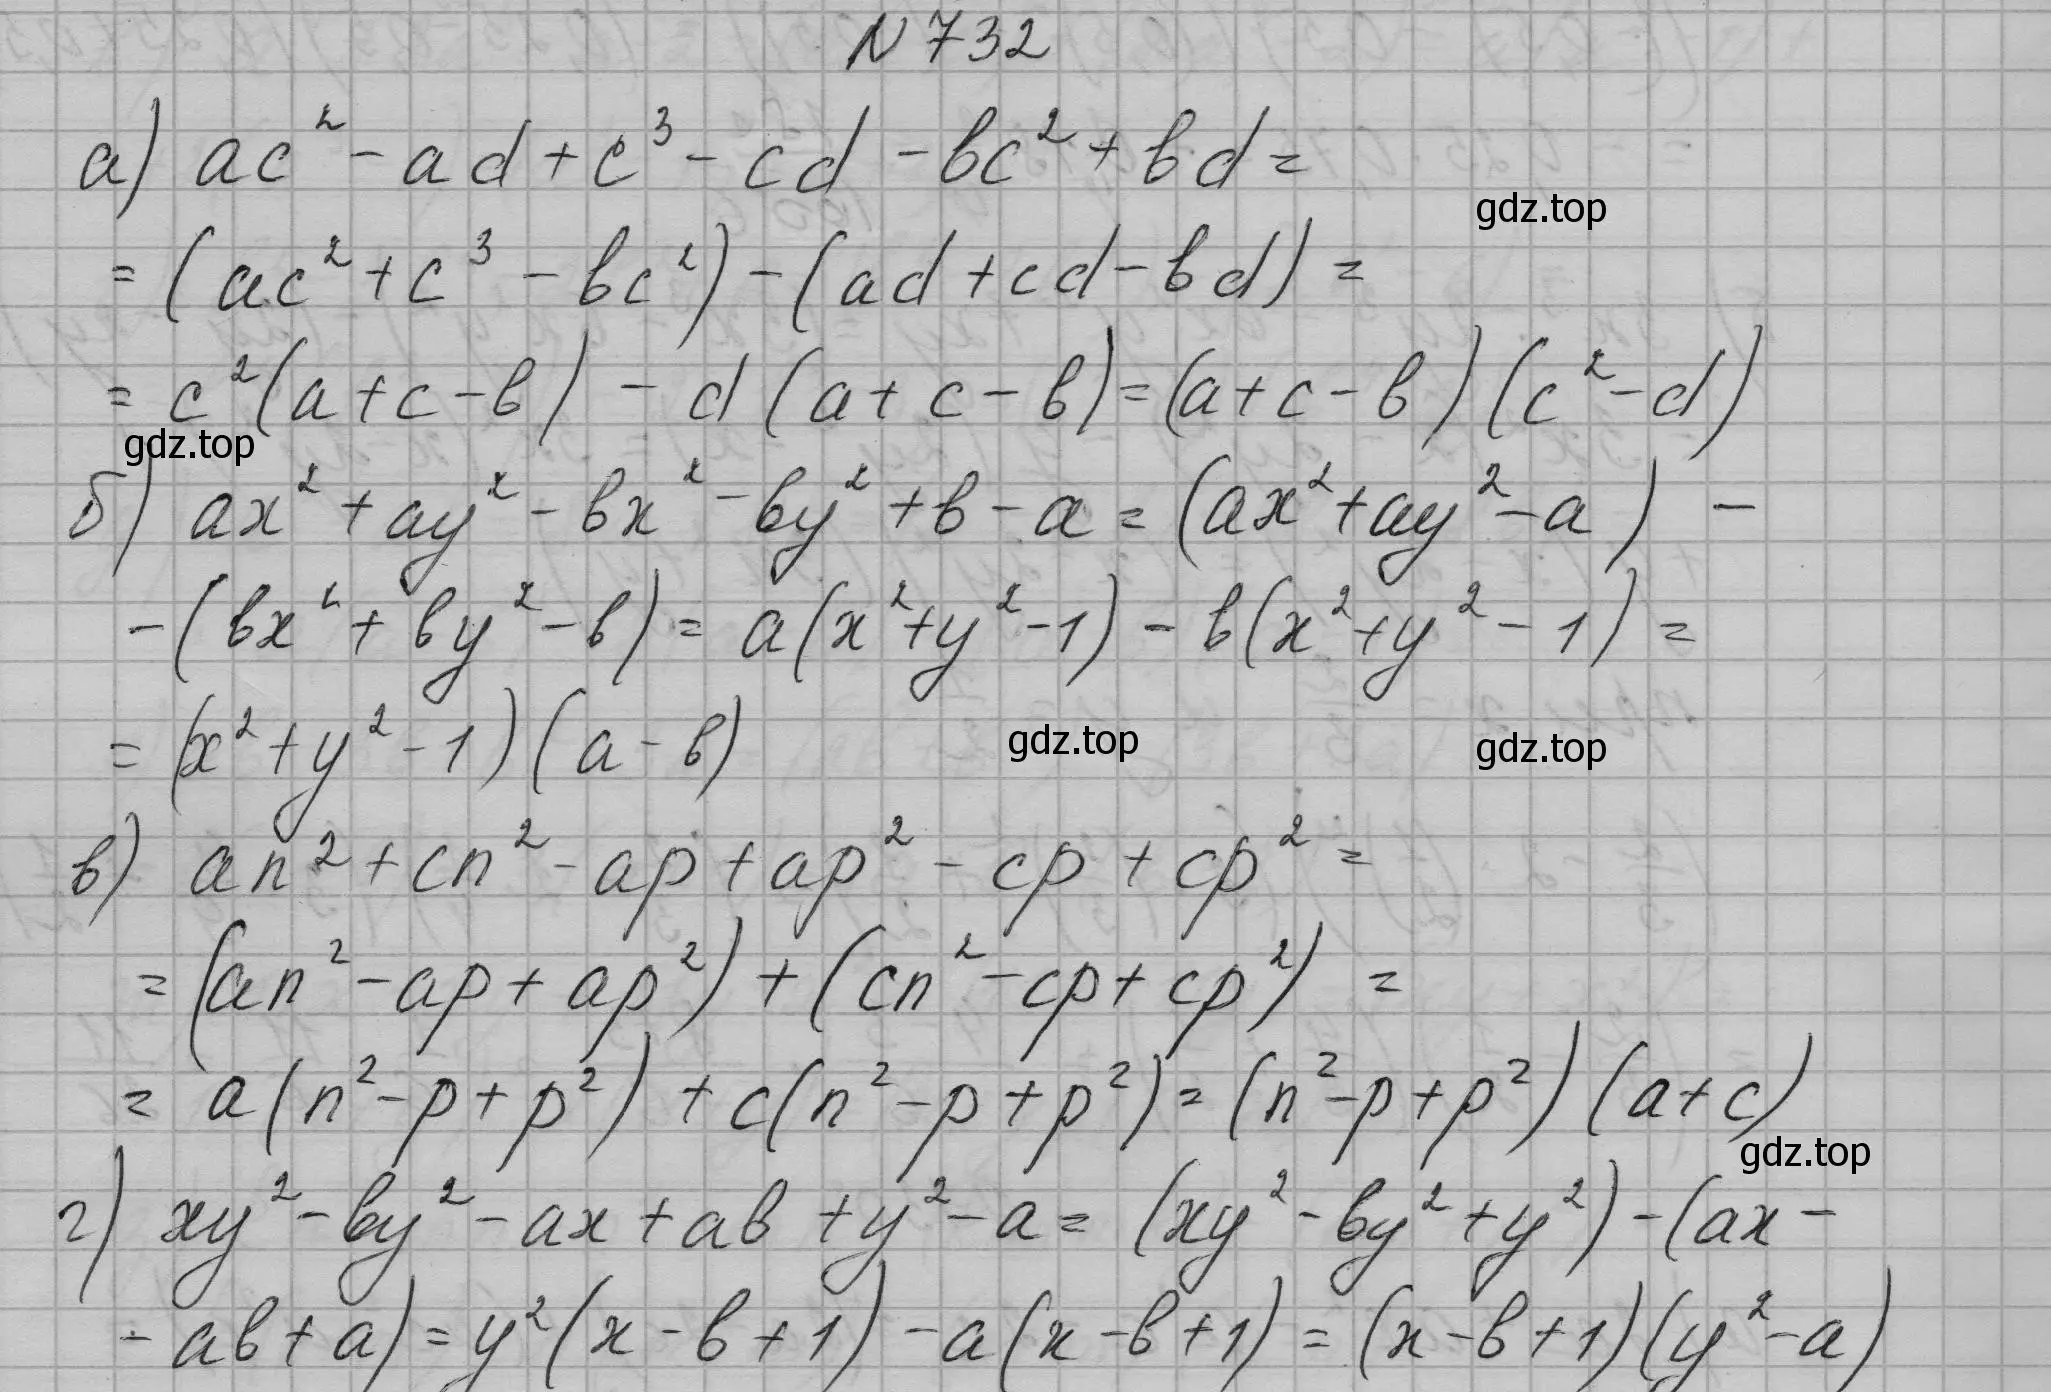 N 732
а) ac² - ad + c³ - cd - bc² + bd =
gdz.top
= (ac² + c³ - bc²) - (ad + cd - bd) =
= c²(a + c - b) - d(a + c - b) = (a + c - b)(c² - d)
gdz.top
б) ax² + ay² - bx² - by² + b - a = (ax² + ay² - a) -
- (bx² + by² - b) = a(x² + y² - 1) - b(x² + y² - 1) =
= (x² + y² - 1)(a - b)
gdz.top
gdz.top
в) an² + cn² - ap + ap² - cp + cp² =
= (an² - ap + ap²) + (cn² - cp + cp²) =
= a(n² - p + p²) + c(n² - p + p²) = (n² - p + p²)(a + c)
gdz.top
г) xy² - by² - ax + ab + y² - a = (xy² - by² + y²) - (ax -
- ab + a) = y²(x - b + 1) - a(x - b + 1) = (x - b + 1)(y² - a)